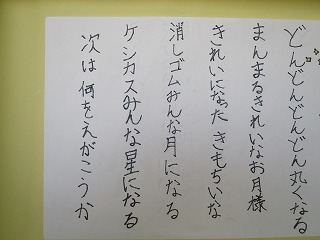 どんどんどんどん丸くなる
まんまるきれいなお月様
きれいになった きもちいな
消しゴムみんな月になる
ケシカスみんな星になる
次は何をえがこうか